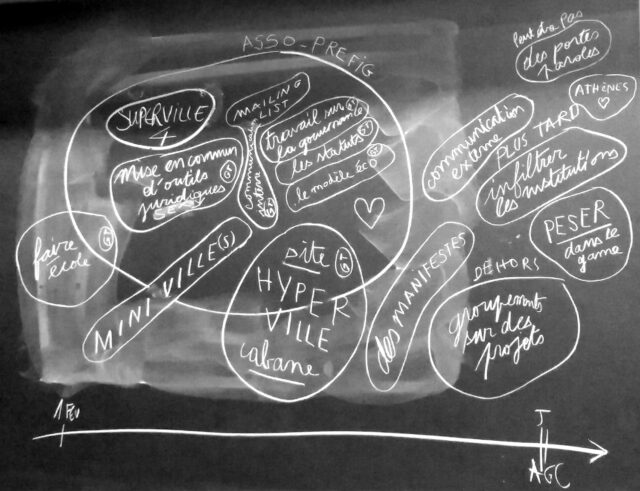 Peut être Pas
des portes
Paroles
ASSO-PREFIG
ATHÈNES
MAILING
LIST
SUPERVILLE
4
communication
externe
PLUS TARD
infiltrer
les institutions
travail sur
la gouvernance
les statuts
le modèle éco
mise en commun
d'outils
juridiques
communication
interne
PESER
dans le
game
faire
école
MINI VILLE(S)
site
HYPER
VILLE
cabane
des MANIFESTES
DEHORS
groupements
sur des
projets
1 FEV
J
AGC